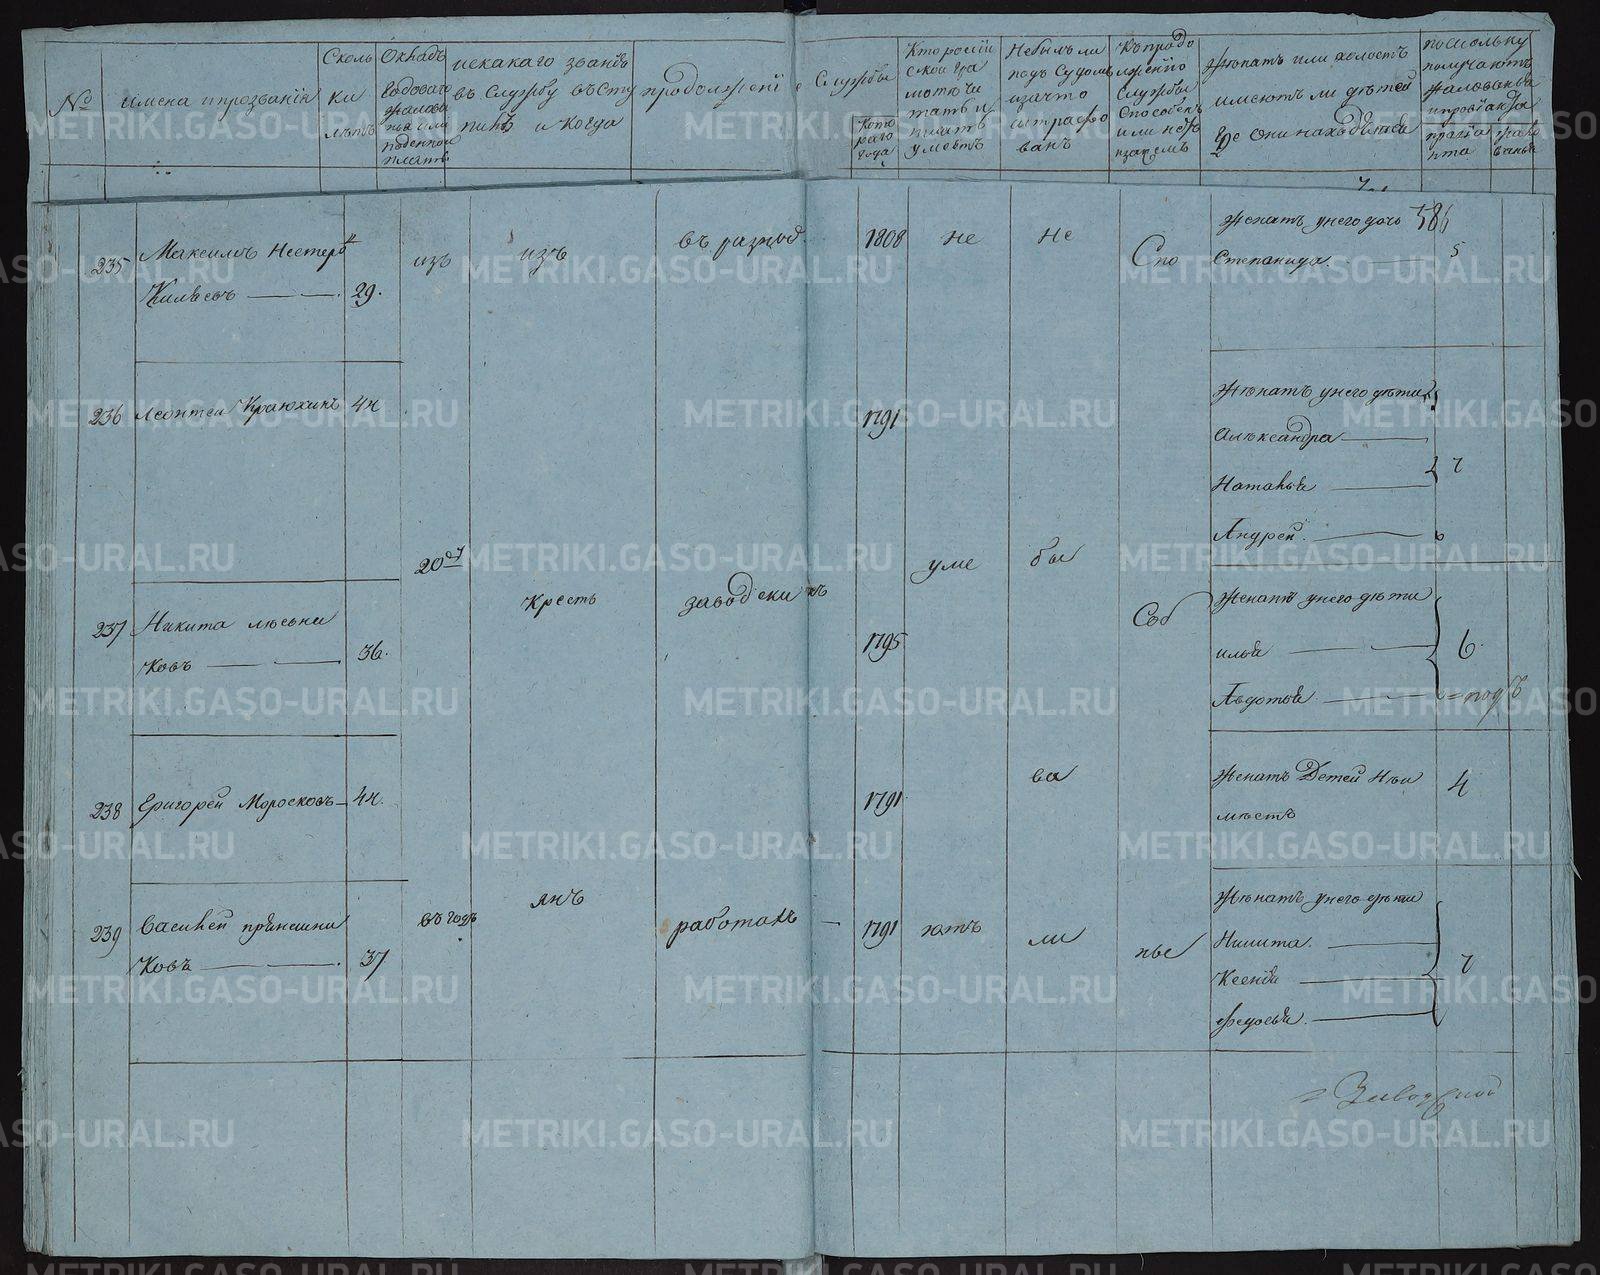 №
имена и прозвания
Сколь
ки
лѣтъ
Окладъ
годоваго
жалова
нья или
поденной
платѣ
и с какаго званія
въ службу въсту
пилъ и когда
продолженіе
службы
Кото
раго
года
Кто россій
ской гра
мотѣ чи
тать и
писать
умѣетъ
Небылъ ли
подъ судомъ
и за что
штрафо
ванъ
Къ продо
лженію
службы
способенъ
или нѣтъ
и зачемъ
Женатъ или холостъ
имеютъ ли дѣтей
где они находятся
по скольку
получаютъ
жалованья
и провіанта
провіа
нта
жало
ванья
586
235 Максимъ Нестеровъ
29.
изъ
изъ
въ разнод
1808
не
не
Спо
Женатъ у него дочь
Степанида.
5
236 Леонтей Краюхинъ 44
1791
Женатъ у него дѣти
Александра
Наталья
Андрей.
7
20 д
кресть
заводски хъ
уме
бы
Соб
237 Никита
ковъ 36.
1795
Женатъ у него дѣти
илья
Авдотья
6.
238 Григорей Моросковъ 44.
1791
ва
Женатъ Детей Не и
меетъ
4
239 Василей прянешни
ковъ 37
въ годъ
янъ
работахъ
1791
ютъ
ли
ные
Женатъ у него дѣти
Никита.
Ксенья
Федосья.
7
METRIKI.GASO-URAL.RU